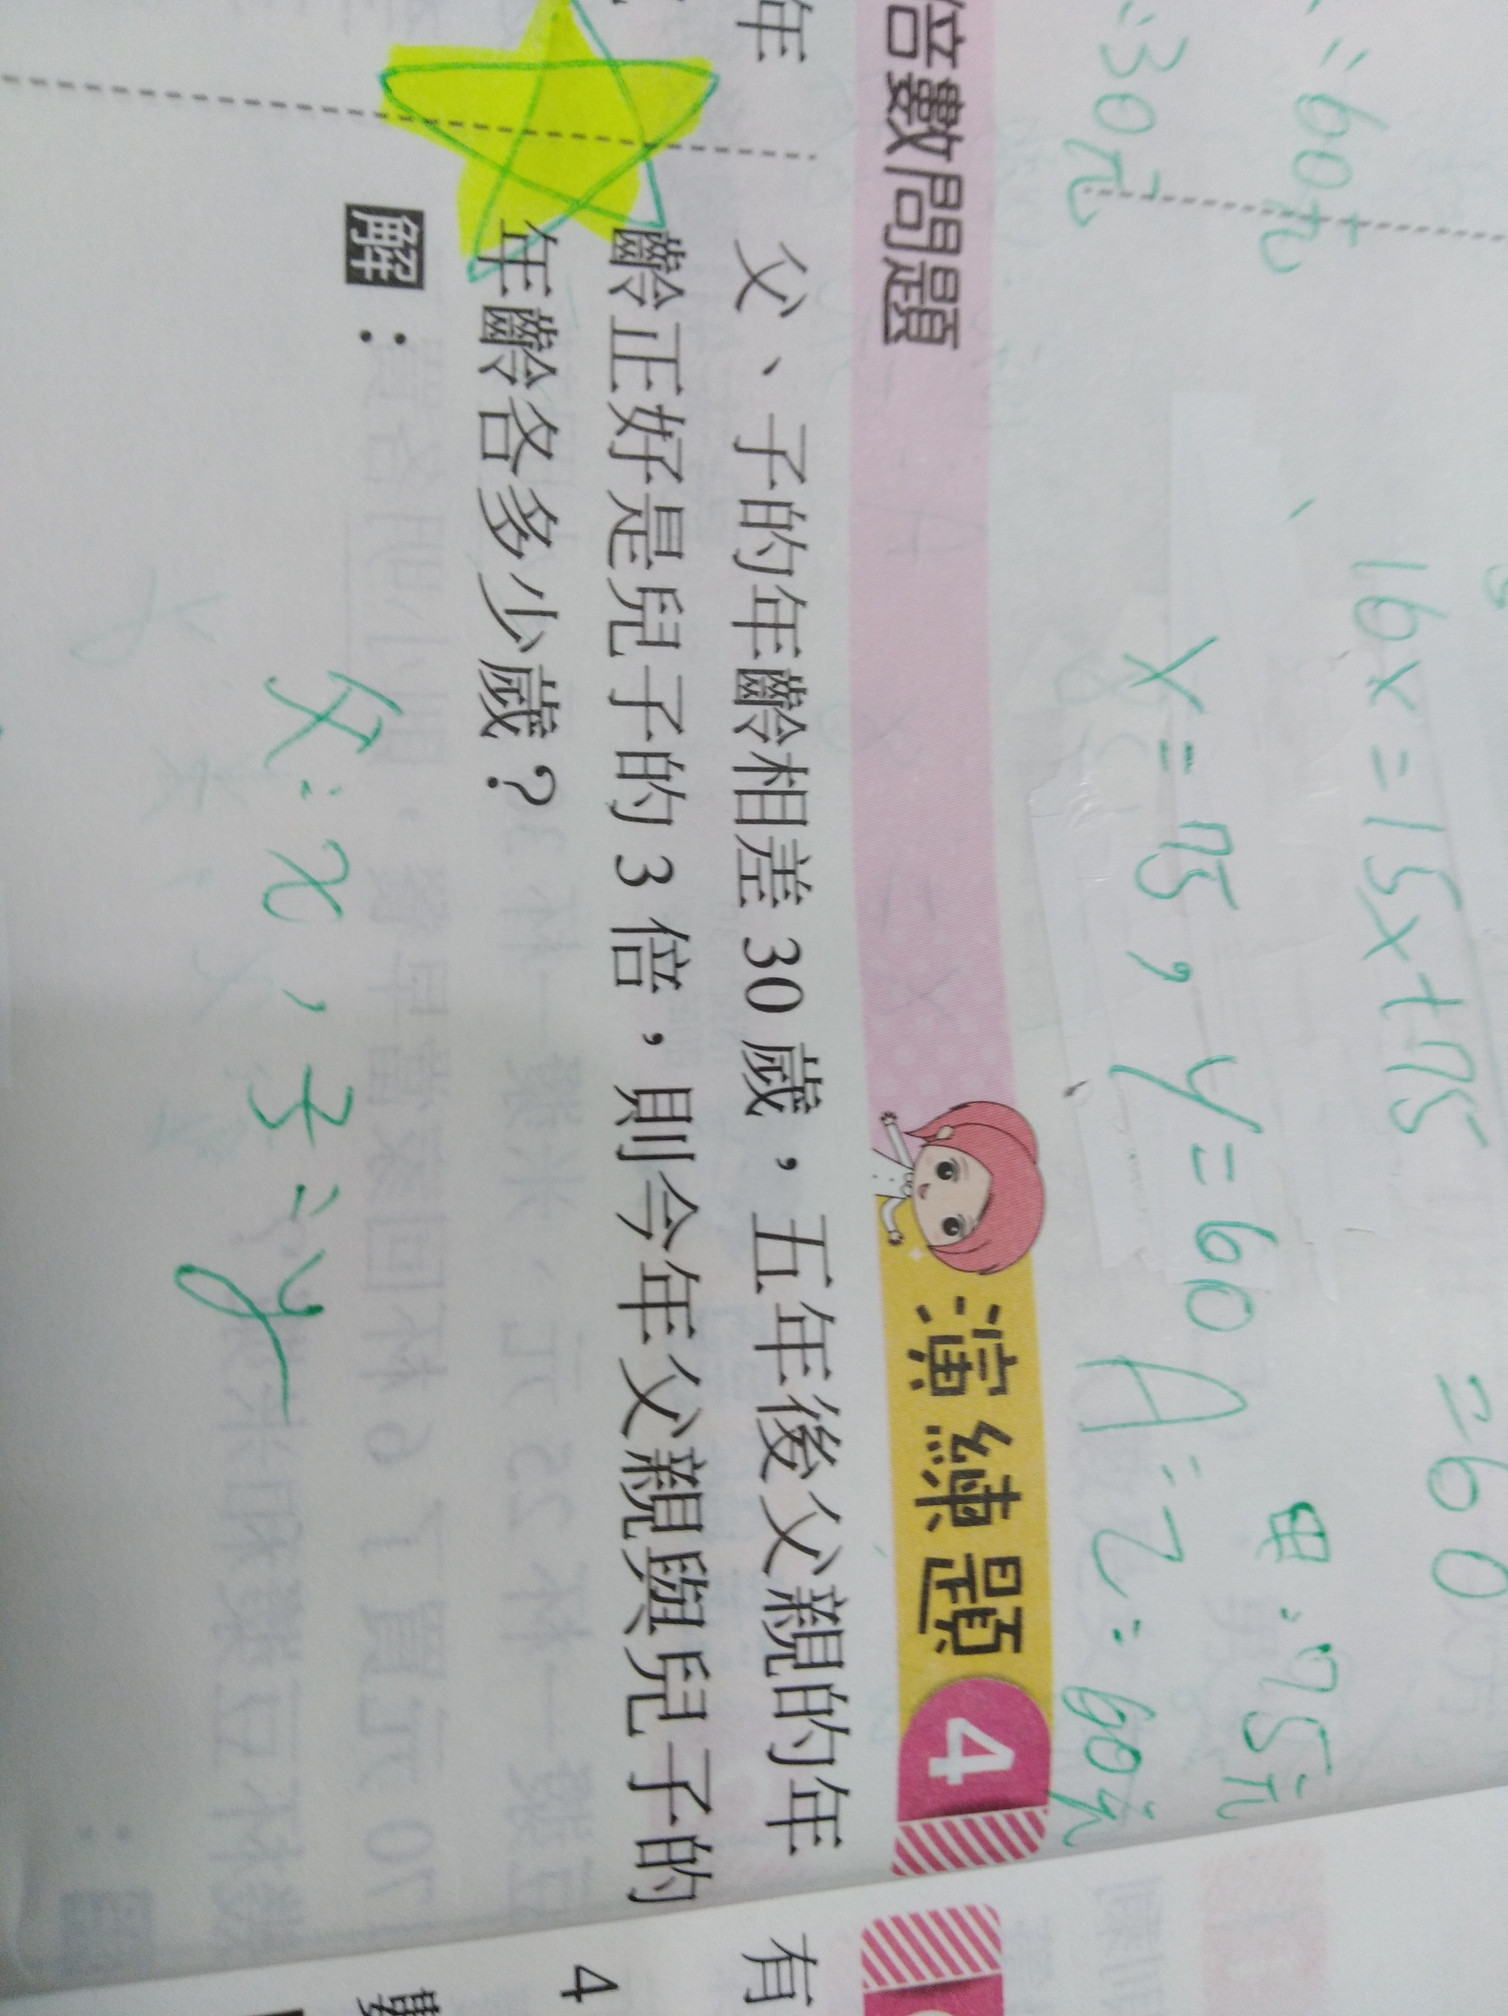 = 60
16x = 15x+75
: = 60元
甲: 75元
x = 75, y = 60
A: Z: 60元
: 30元
倍數問題
演練題 4
年
父、子的年齡相差 30 歲,五年後父親的年
齡正好是兒子的 3 倍,則今年父親與兒子的
年齡各多少歲?
解:
父: x, 子: y
有
4